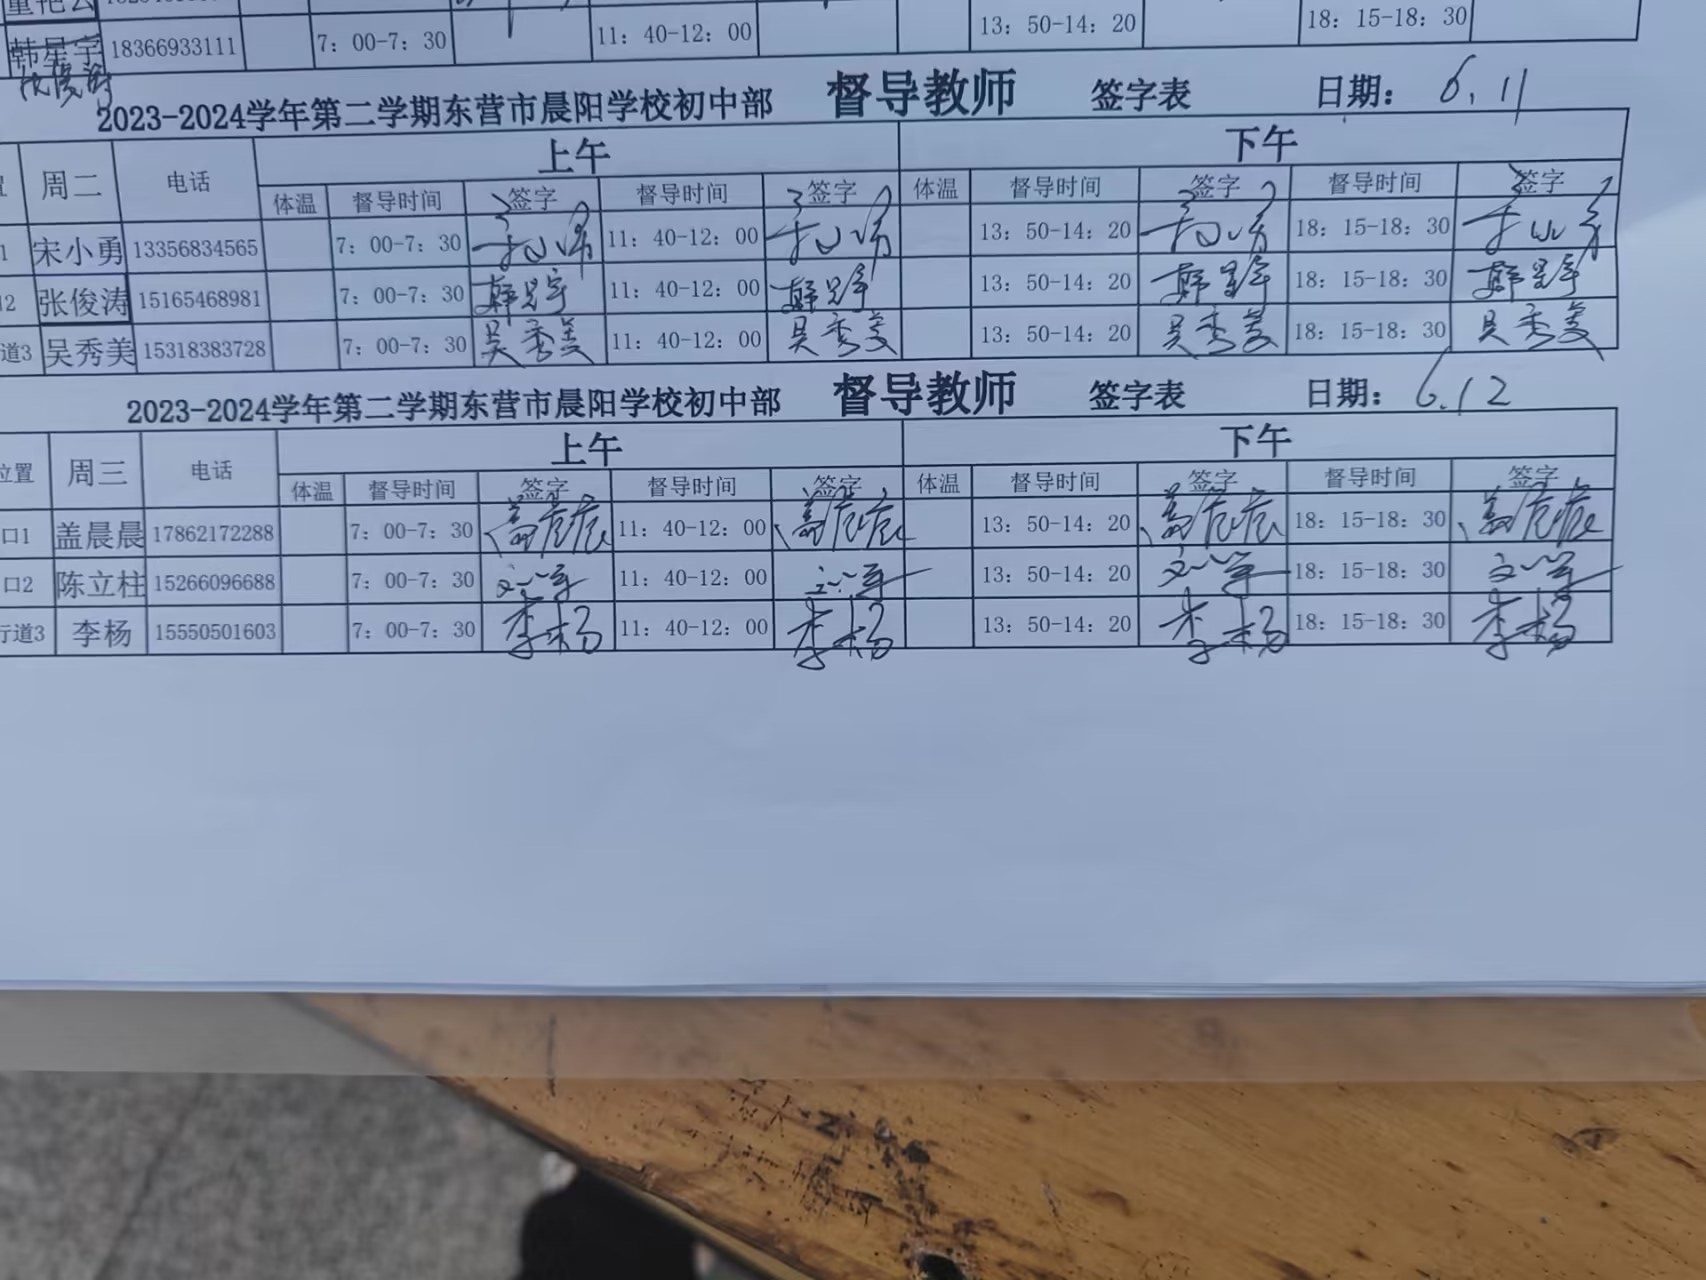 韩星宇 18366933111 7：00-7：30 11：40-12：00 13：50-14：20 18：15-18：30
2023-2024学年第二学期东营市晨阳学校初中部 督导教师 签字表 日期： 6.11
周二 电话 上午 下午
体温 督导时间 签字 督导时间 签字 体温 督导时间 签字 督导时间 签字
1 宋小勇 13356834565 7：00-7：30 11：40-12：00 13：50-14：20 18：15-18：30
2 张俊涛 15165468981 7：00-7：30 韩星宇 11：40-12：00 韩星宇 13：50-14：20 韩星宇 18：15-18：30 韩星宇
道3 吴秀美 15318383728 7：00-7：30 吴秀美 11：40-12：00 吴秀美 13：50-14：20 吴秀美 18：15-18：30 吴秀美
2023-2024学年第二学期东营市晨阳学校初中部 督导教师 签字表 日期： 6.12
位置 周三 电话 上午 下午
体温 督导时间 签字 督导时间 签字 体温 督导时间 签字 督导时间 签字
口1 盖晨晨 17862172288 7：00-7：30 盖晨晨 11：40-12：00 盖晨晨 13：50-14：20 盖晨晨 18：15-18：30 盖晨晨
口2 陈立柱 15266096688 7：00-7：30 11：40-12：00 13：50-14：20 18：15-18：30
行道3 李杨 15550501603 7：00-7：30 李杨 11：40-12：00 李杨 13：50-14：20 李杨 18：15-18：30 李杨